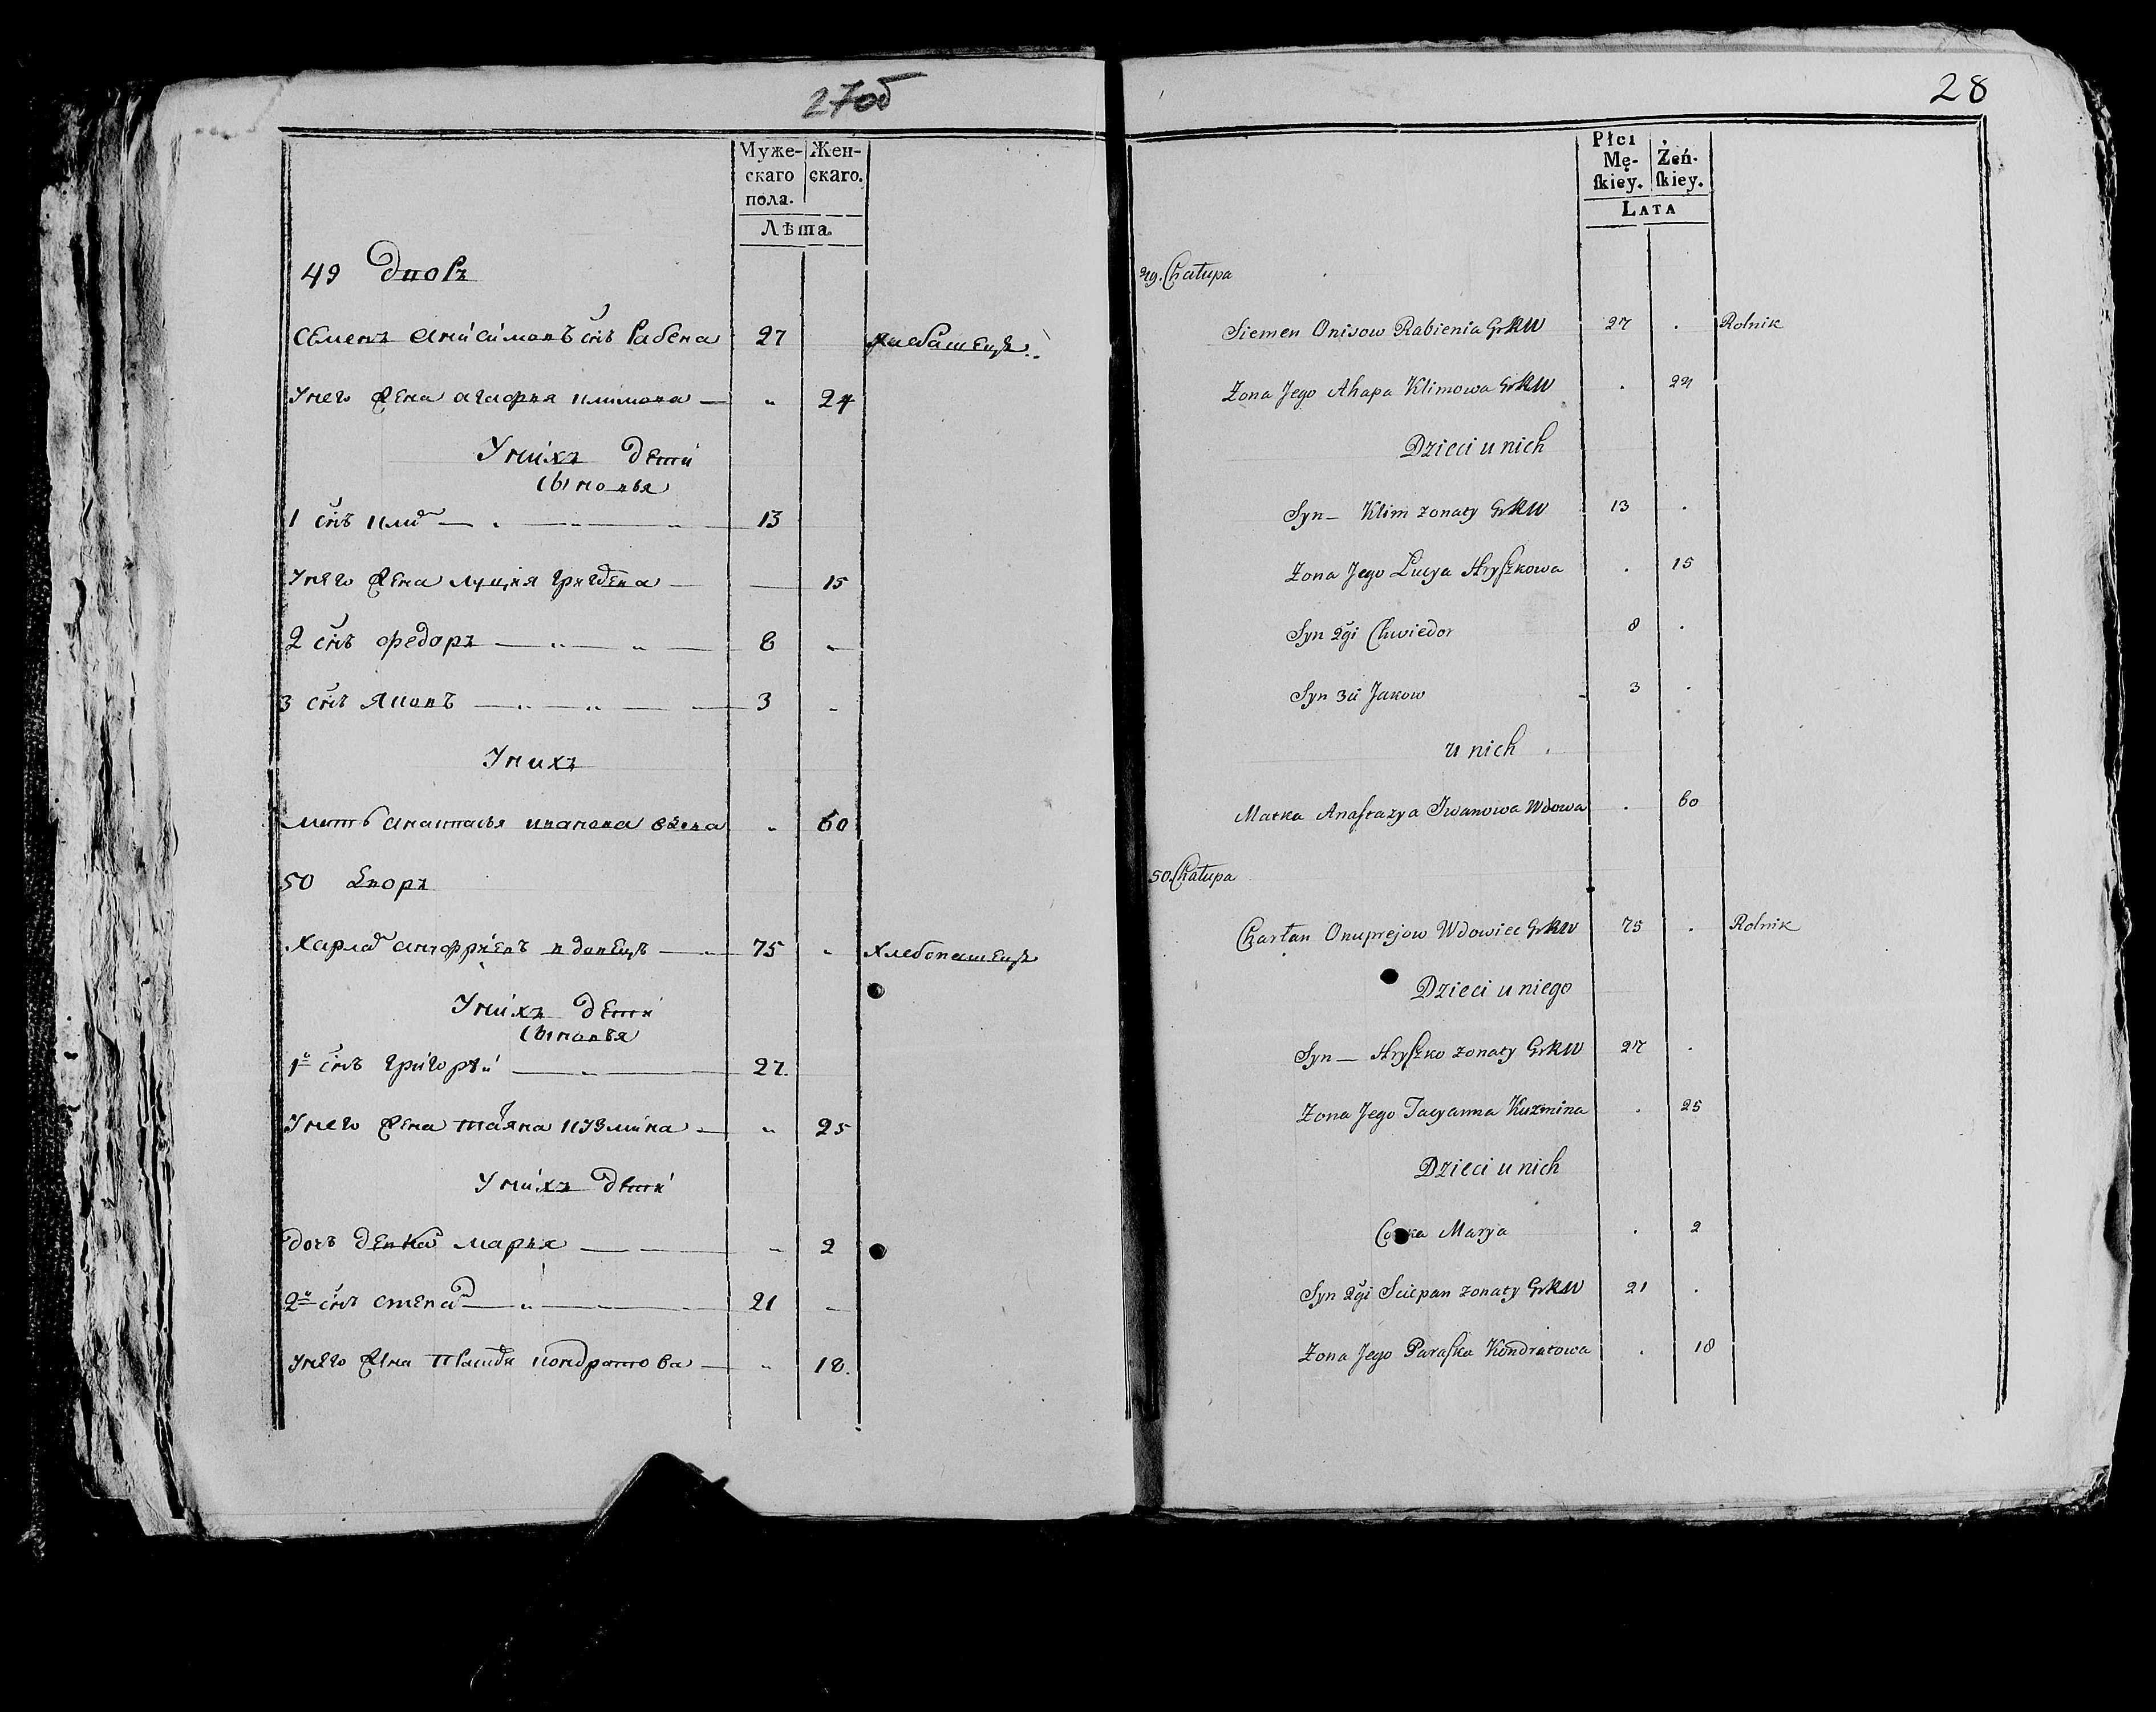 27об
Муже-
скаго
пола.
Жен-
скаго.
Лѣта.
49 Дворъ
Семенъ Анисимовъ снъ Рабена 27 хлебапашецъ
У него жена Агафия климова — „ 24
У нихъ дети
сыновья
1 снъ клим — 13
У него жена Луция григорева — 15
2 снъ федоръ — 8 „
3 снъ Яковъ — 3 „
У нихъ
мать Анастасья иванова вдова „ 60
50 Дворъ
Харлам ануфриевъ вдовецъ — 75 „ Хлебопашецъ
У нихъ дети
сыновья
1й снъ григорѣй — 27.
У него жена татяна кузмина — „ 25
У нихъ дети
дочь девка марья — „ 2
2й снъ степан — 21 „
У него жена кондратова — „ 18.
28
Płci
Mę-
ſkiey.
Żeń-
ſkiey.
LATA
49. Chałupa
Siemen Onisow Rabienia GrRW 27 . Rolnik
Zona Jego Ahapa Klimowa GrRW . 24
Dzieci u nich
Syn — Klim zonaty GrRW 13 .
Zona Jego Lucya Hryſzkowa . 15
Syn 2gi Chwiedor 8 .
Syn 3ci Jakow 3 .
u nich
Matka Anaſtazya Iwanowa Wdowa . 60
50. Chałupa
Charłan Onuprejow Wdowiec GrRW 75 . Rolnik
Dzieci u niego
Syn — Hryſzko zonaty GrRW 27 .
Zona Jego Tacyanna Kuzmina . 25
Dzieci u nich
Corka Marya . 2
Syn 2gi Sciepan zonaty GrRW 21 .
Zona Jego Paraſka Kondratowa . 18